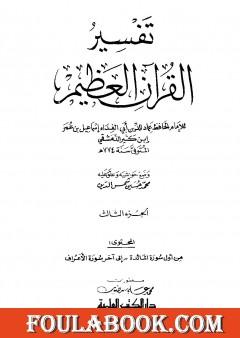 تفسير
القرآن العظيم
للإمام الحافظ عماد الدين أبي الفداء إسماعيل بن عمر
ابن كثير الدمشقي
المتوفى سنة ٧٧٤هـ
وضع حواشيه وعلق عليه
محمد حسين شمس الدين
الجزء الثالث
المحتوى:
من أول سورة المائدة - إلى آخر سورة الأعراف
منشورات
دار الكتب العلمية
FOULABOOK.COM